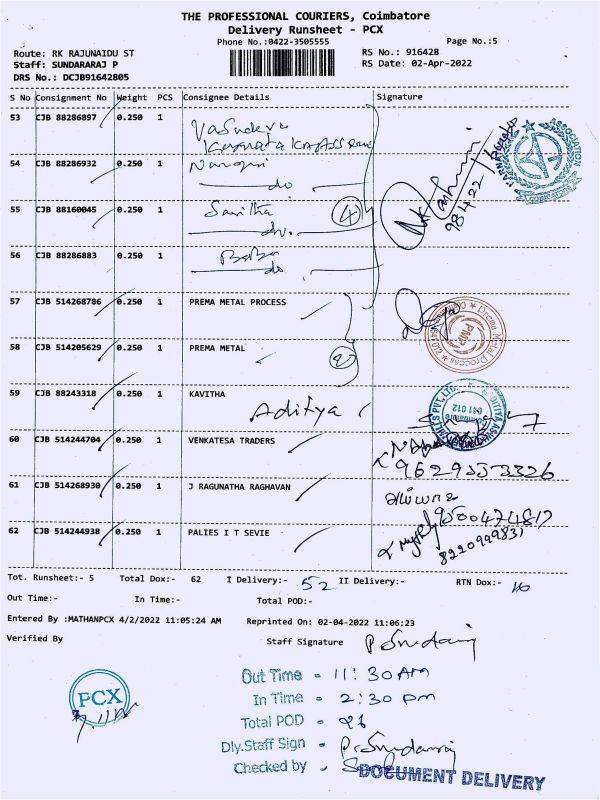 THE PROFESSIONAL COURIERS, Coimbatore
Delivery Runsheet - PCX
Phone No.:0422-3505555 Page No.:5
Route: RK RAJUNAIDU ST RS No.: 916428
Staff: SUNDARARAJ P RS Date: 02-Apr-2022
DRS No.: DCJB91642805
S No Consignment No Weight PCS Consignee Details Signature
53 CJB 88286897 0.250 1 Vasudeva
54 CJB 88286932 0.250 1
do
55 CJB 88160045 0.250 1 Savitha
do. 4
56 CJB 88286883 0.250 1
do
57 CJB 514268786 0.250 1 PREMA METAL PROCESS
58 CJB 514205629 0.250 1 PREMA METAL
2
59 CJB 88243318 0.250 1 KAVITHA
Aditya
60 CJB 514244704 0.250 1 VENKATESA TRADERS
61 CJB 514268930 0.250 1 J RAGUNATHA RAGHAVAN
62 CJB 514244938 0.250 1 PALIES I T SEVIE
8220999831
ASSOCIATION
Prema Metal Process
PMP
641 012
Tot. Runsheet:- 5 Total Dox:- 62 I Delivery:- 52 II Delivery:- RTN Dox:- 10
Out Time:- In Time:- Total POD:-
Entered By :MATHANPCX 4/2/2022 11:05:24 AM Reprinted On: 02-04-2022 11:06:23
Verified By Staff Signature
Out Time - 11:30 AM
In Time - 2:30 pm
PCX
Total POD -
Dly.Staff Sign -
Checked by -
DOCUMENT DELIVERY